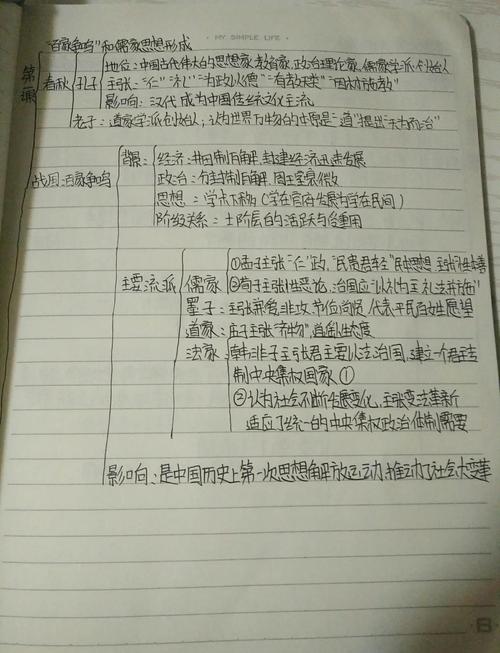 MY SIMPLE LIFE
"百家争鸣"和儒家思想形成
第一课
春秋 孔子 地位：中国古代伟大的思想家、教育家、政治理论家、儒家学派创始人
主张："仁""礼""为政以德""有教无类""因材施教"
影响：汉代成为中国传统文化主流
老子：道家学派创始人；认为世界万物的本原是"道"提出"无为而治"
战国：百家争鸣 背景：经济：井田制瓦解，封建经济迅速发展
政治：分封制瓦解，周王室衰微
思想：学术下移（学在官府发展为学在民间）
阶级关系：士阶层的活跃与受重用
主要流派 儒家 ①孟子主张"仁"政，"民贵君轻"民本思想 主张"性本善"
②荀子主张性恶论，治国应"以礼为主，礼法并施"
墨子：主张兼爱、非攻、节俭、尚贤，代表平民百姓愿望
道家：庄子主张"齐物"，逍遥人生态度
法家：韩非子主张君主要以法治国，建立一个君主专
制中央集权国家 ①
②认为社会不断发展变化，主张变法革新
适应了统一的中央集权政治体制需要
影响：是中国历史上第一次思想解放运动，推动了社会大变革
B